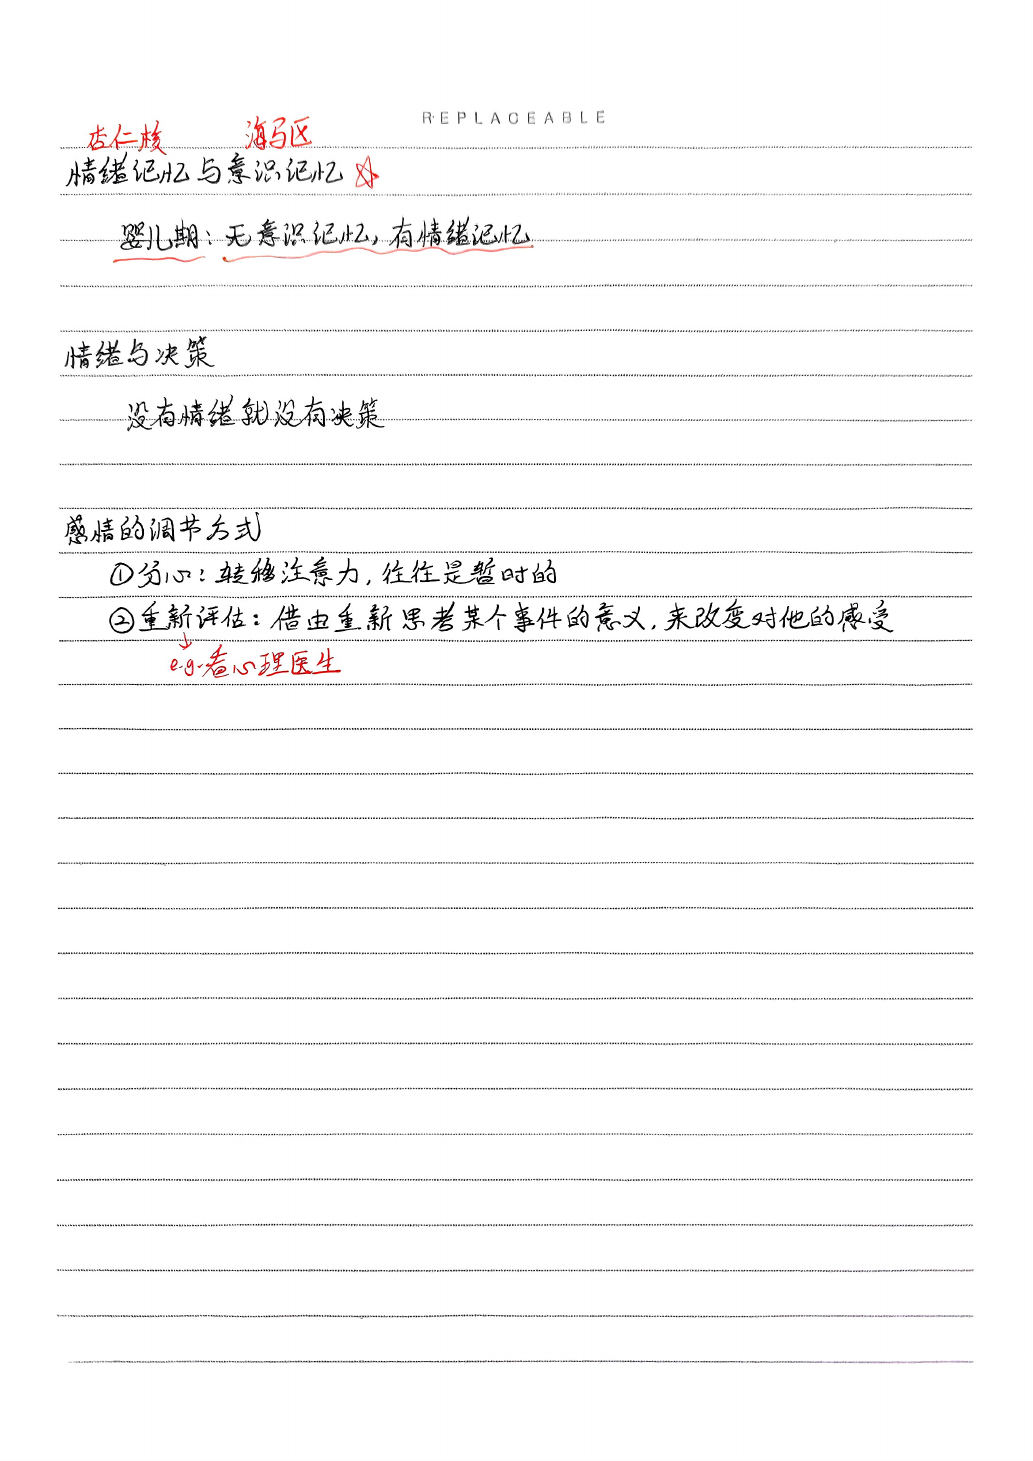 REPLACEABLE
杏仁核 海马区
情绪记忆与意识记忆 ☆
婴儿期：无意识记忆，有情绪记忆
情绪与决策
没有情绪就没有决策
感情的调节方式
①分心：转移注意力，往往是暂时的
②重新评估：借由重新思考某个事件的意义，来改变对他的感受
e.g.看心理医生